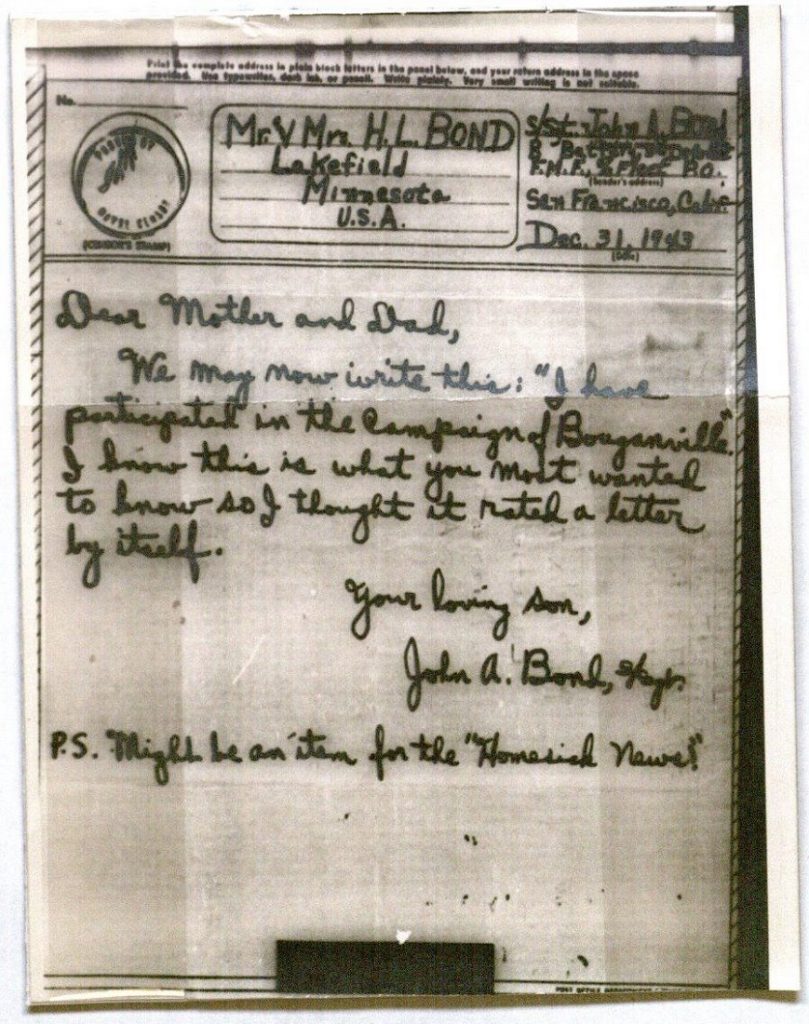 Print the complete address in plain block letters in the panel below, and your return address in the space
provided. Use typewriter, dark ink, or pencil. Write plainly. Very small writing is not suitable.
No.
PASSED BY
NAVAL CENSOR
(CENSOR'S STAMP)
Mr. & Mrs. H. L. BOND
Lakefield
Minnesota
U.S.A.
S/Sgt. John A. Bond
F.M.F., % Fleet P.O.
(Sender's address)
San Francisco, Calif.
Dec. 31, 1943
(Date)
Dear Mother and Dad,
We may now write this: "I have
participated in the Campaign of Bouganville".
I know this is what you most wanted
to know so I thought it rated a letter
by itself.
Your loving son,
John A. Bond, S/Sgt.
P.S. Might be an item for the "Homesick News".